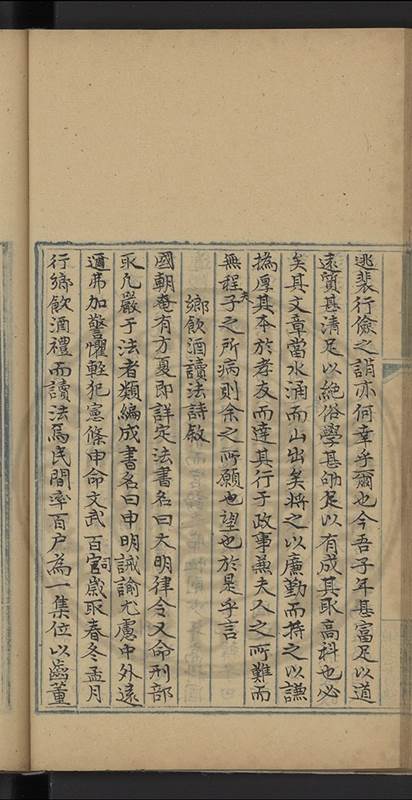 逃裴行儉之誚亦何幸乎爾也今吾子年甚富足以道
遠質甚清足以絶俗學甚師足以有成其取高科也必
矣其文章當水涌而山出矣將之以廉勤而持之以謙
撝厚其本於孝友而達其行于政事兼夫人之所難而
無程子之所病則余之所願也望也於是乎言
夫
鄉飲酒讀法詩敘
國朝奄有方夏即詳定法書名曰大明律令又命刑部
取凡嚴于法者類編成書名曰申明誡諭尤慮中外遠
邇弗加警懼輕犯憲條申命文武百司歲取春冬孟月
行鄉飲酒禮而讀法焉民間率百户為一集位以齒董